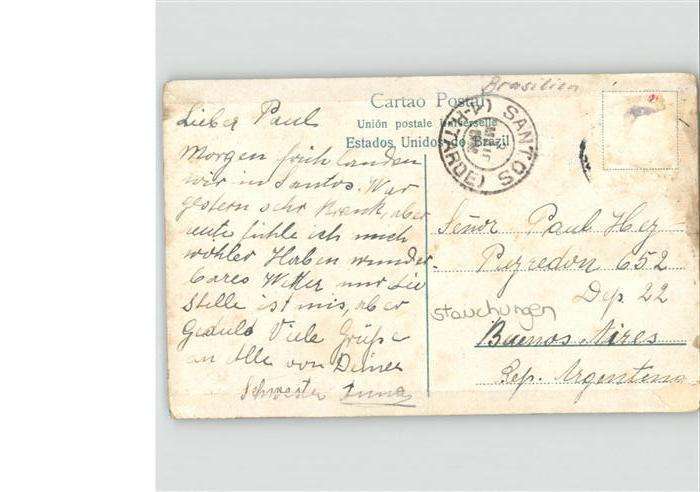 Brasilien
Cartao Postal
Unión postale universelle
Estados Unidos do Brazil
SANTOS
(TARDE)
Lieber Paul
Morgen früh landen
wir in Santos. War
gestern sehr krank, aber
heute fühle ich mich
wohler Haben wunder-
bares Wetter nur die
Stelle ist mis, aber
Geduld Viele Grüße
an Alle von Deiner
Schwester Anna
Señor Paul Hez
Pueredon 652
Dep. 22
stauchungen
Buenos Aires
Rep. Argentina